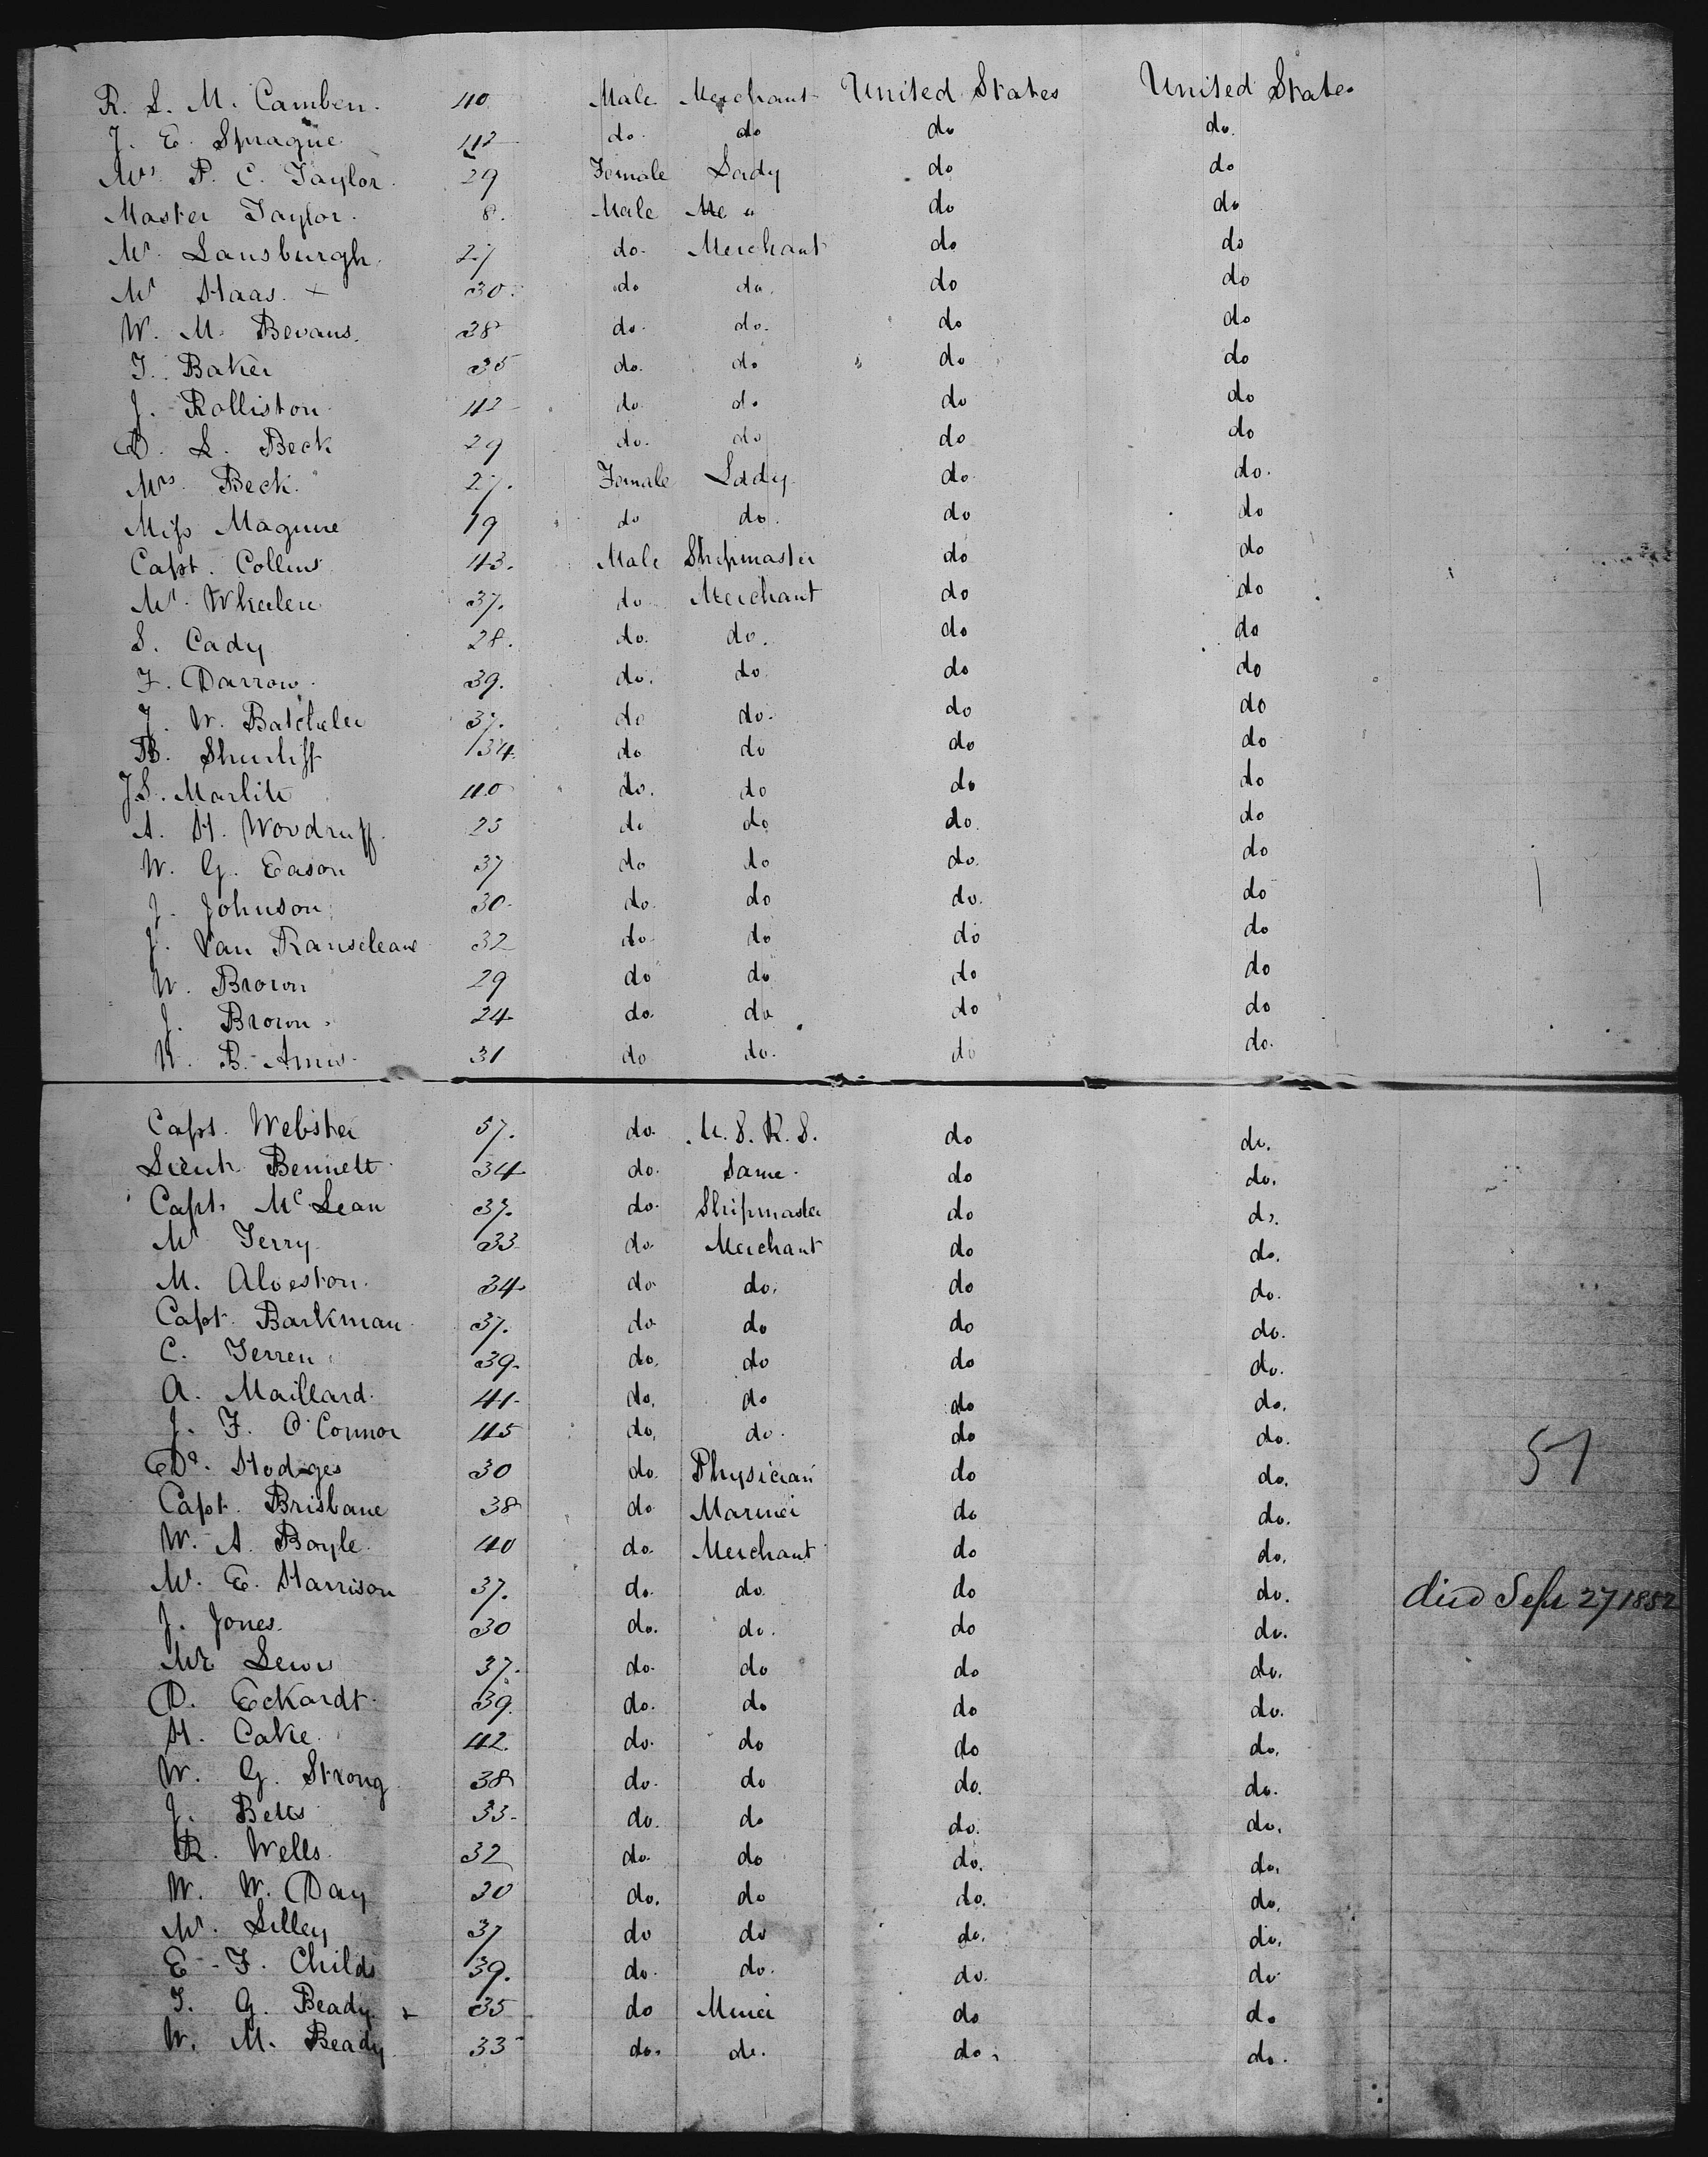 R. S. M. Camben. 40 Male Merchant United States United States
J. E. Sprague 42 do. do do do.
Mrs P. C. Taylor. 29 Female Lady do do
Master Taylor. 8. Male do do
Mr. Lansburgh. 27 do. Merchant do do
Mr Haas. × 30. do do. do do
W. M. Bevans. 38 do. do. do do
J. Baker 35 do. do do do
J. Rolliston 42 do. do do do
D. L. Beck 29 do. do do do
Mrs. Beck. 27. Female Lady do do.
Miss Maguire 19 do do. do do
Capt. Collins 43. Male Shipmaster do do
Mr. Wheeler 37. do Merchant do do
S. Cady 28. do. do. do do
F. Darrow. 39. do. do do do
J. W. Batcheler 37. do do. do do
B. Shurliff 34. do do do do
J S. Marlite 40 do. do do do
A. H. Woodruff. 25 do do do. do
W. G. Eason 37 do do do. do
J. Johnson 30. do. do do. do
J. Van Ranseleare 32 do. do do do
W. Brown 29 do do do do
J. Brown. 24 do. do do do
B. Ames. 31 do do. do do.
Capt. Webster 57. do. U. S. R. S. do do.
Lieut. Bennett. 34 do. Same. do do.
Capt. Mc Lean 37. do. Shipmaster do do.
Mr Terry 33 do. Merchant do do.
M. Alveston. 34 do do. do do.
Capt. Barkman 37. do do do do.
C. Terren 39. do. do do do.
A. Maillard. 41. do. do do do.
J. F. O'Connor 45 do. do. do do.
51
Dr. Hodges 30 do. Physician do do.
Capt. Brisbane 38 do. Mariner do do.
W. A. Boyle. 40 do. Merchant do do.
W. E. Harrison 37. do. do. do do. died Sept 27 1852
J. Jones. 30 do. do. do do.
Mr Lewis 37. do. do do do.
D. Eckardt. 39. do. do do do.
H. Cake. 42. do. do do do.
W. G. Strong 38 do. do do. do.
J. Betts 33 do. do do. do.
R. Wells. 32 do. do do. do.
W. W. Day 30 do. do do. do.
Mr. Lilley 37 do do do. do.
E. F. Childs 39. do. do. do. do.
J. G. Beady. × 35 do Miner do do
W. M. Beady 33 do. do. do. do.